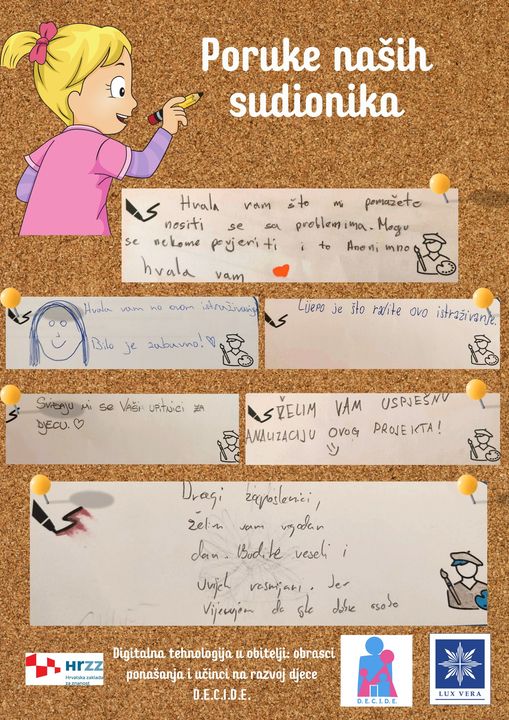 Poruke naših
sudionika
Hvala vam što mi pomažete
nositi se sa problemima. Mogu
se nekome povjeriti i to Anonimno
hvala vam
Hvala vam na ovom istraživanju
Bilo je zabavno!
Lijepo je što radite ovo istraživanje.
SVIĐAJU MI SE VAŠI UPITNICI ZA
DJECU.
ŽELIM VAM USPJEŠNU
ANALIZACIJU OVOG PROJEKTA!
Dragi zaposlenici,
želim vam ugodan
dan. Budite veseli i
uvijek nasmijani. Jer
vjerujem da ste dobre osobe
HRZZ
Hrvatska zaklada
za znanost
Digitalna tehnologija u obitelji: obrasci
ponašanja i učinci na razvoj djece
D.E.C.I.D.E.
D.E.C.I.D.E.
LUX VERA